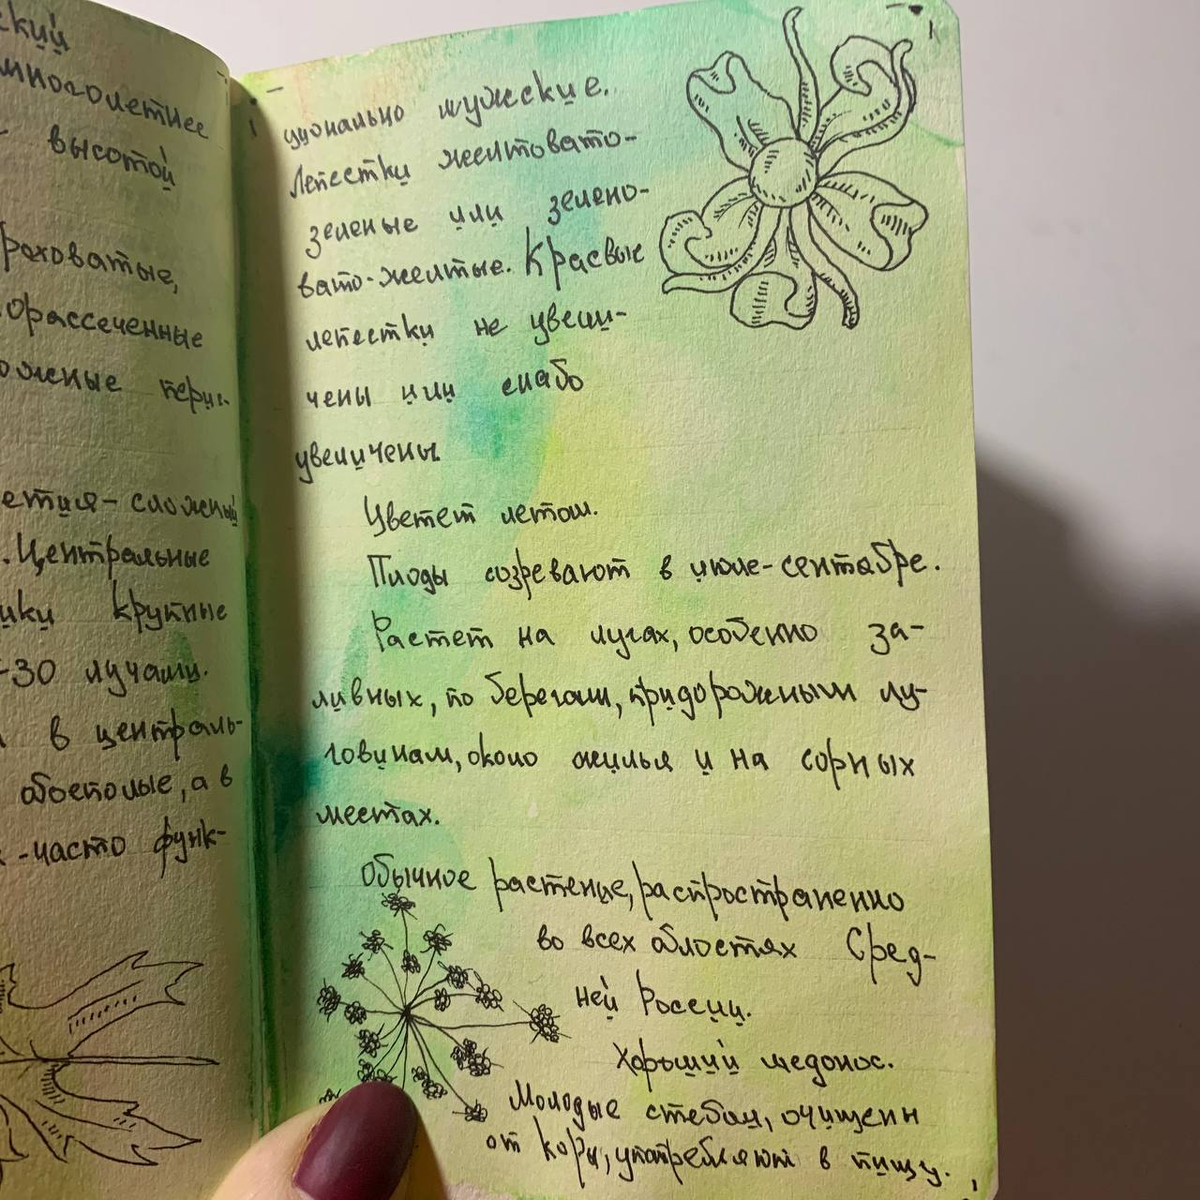 ский
многолетнее
высотой
роховатые,
орассеченные
ожные пери-
етия-сложный
. Центральные
ики крупные
-30 лучами.
в централь-
обоеполые, а в
-часто функ-
ционально мужские.
Лепестки желтовато-
зеленые или зелено-
вато-желтые. Краевые
лепестки не увели-
чены или слабо
увеличены.
Цветет летом.
Плоды созревают в июле-сентябре.
Растет на лугах, особенно за-
ливных, по берегам, придорожным лу-
говинам, около жилья и на сорных
местах.
Обычное растение, распространенно
во всех облостях Сред-
ней России.
Хороший медонос.
Молодые стебли, очищенн
от коры, употребляют в пищу.